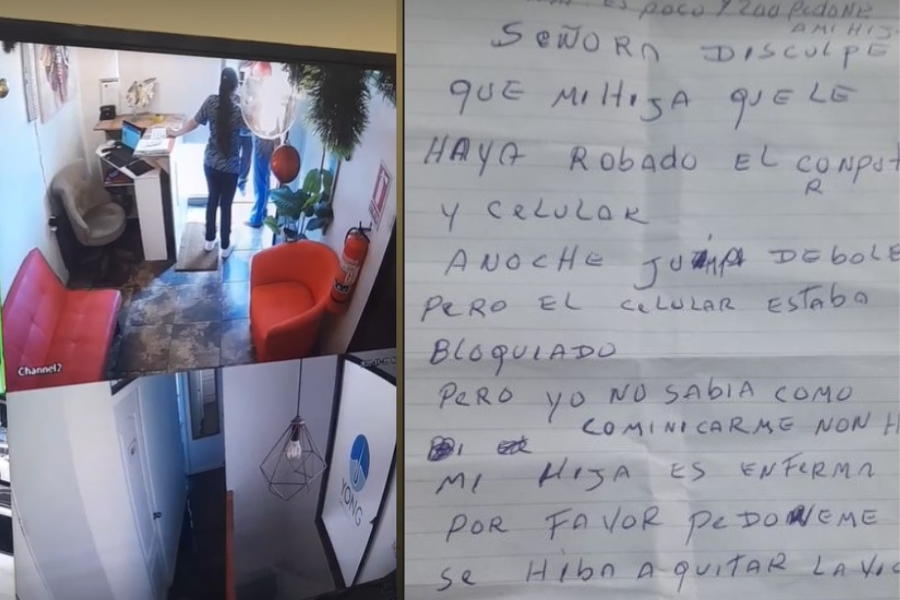 Channel2
YONG
ES POCO Y 200 PEDONE
AMI HIJ
SEÑORA DISCULPE
QUE MI HIJA QUE LE
HAYA ROBADO EL CONPUT
R
Y CELULAR
ANOCHE DEBOLE
PERO EL CELULAR ESTABA
BLOQUIADO
PERO YO NO SABIA COMO
COMINICARME NON H
MI HIJA ES ENFERMA
POR FAVOR PEDONEME
SE HIBA A QUITAR LA VIC